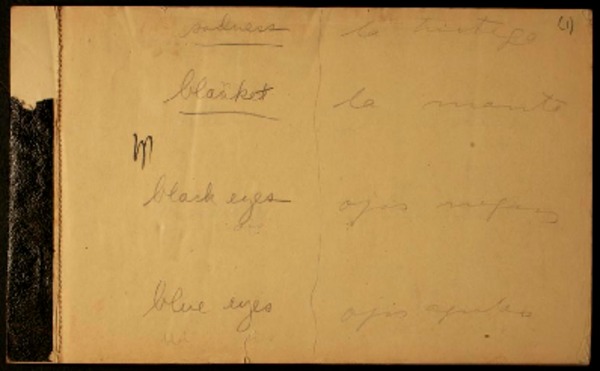 (1)
sadness la tristeza
blanket la manta
M
black eyes ojos negros
blue eyes ojos azules